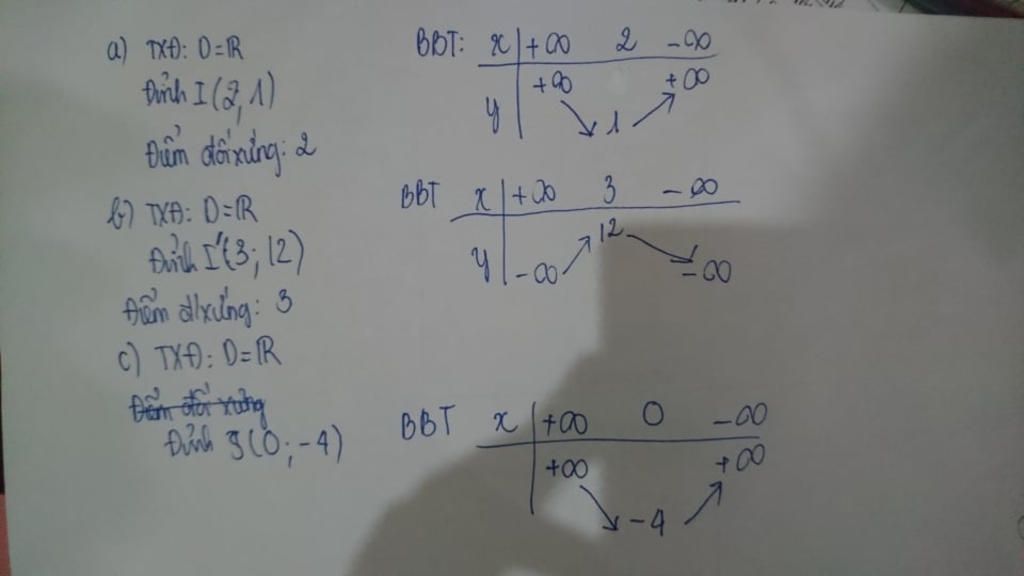 a) TXĐ: D=ℝ
Đỉnh I(2,1)
Điểm đối xứng: 2
BBT: x | +∞ 2 -∞
+∞ +∞
y 1
b) TXĐ: D=ℝ
Đỉnh I'(3; 12)
Điểm đ/xứng: 3
BBT x | +∞ 3 -∞
12
y -∞ -∞
c) TXĐ: D=ℝ
Điểm đối xứng
Đỉnh (0; -4)
BBT x | +∞ 0 -∞
+∞ +∞
-4